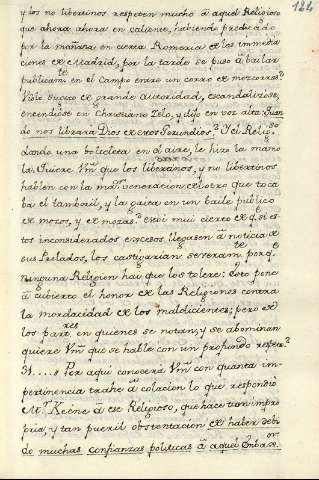 124
y los no libertinos respeten mucho â aquel Religioso
que ahora ahora en caliente, habiendo predicado
por la mañana en cierta Romeria de las inmedia
ciones de Madrid, por la tarde se puso â bailar
publicam.te en el Campo entre un corro de mozorros?
Viólo sugeto de grande autoridad, escandalizose,
encendióse en Christiano Zelo, y dijo en voz alta: Quan
do nos librará Dios de estos Gerundios? Y el Relig.so
dando una boleteea en el aire, le hizo la mano
la. Quiere Vm. que los libertinos, y no libertinos
hablen con la m.r veneracion de el otro que toca
ba el tamboril, y la gaita en un baile publico
de mozos, y de mozas? Estoi mui cierto de q. si es
tos inconsiderados excesos llegasen â noticia de
sus Prelados, los castigarian severam.te porq.e
ninguna Religion hai que los tolere: Esto pone
â cubierto el honor de las Religiones contra
la mordacidad de los maldicientes; pero de
los par.res en quienes se notan, y se abominan
quiere Vm. que se hable con un profundo respeto?
31.... Por aqui conocerá Vm. con quanta im-
pertinencia trahe â colacion lo que respondió
M.r Keene â ese Religioso, que hace tan impro
pria, y tan pueril obstentacion de haber debi
do muchas confianzas politicas â aquel Embax.or